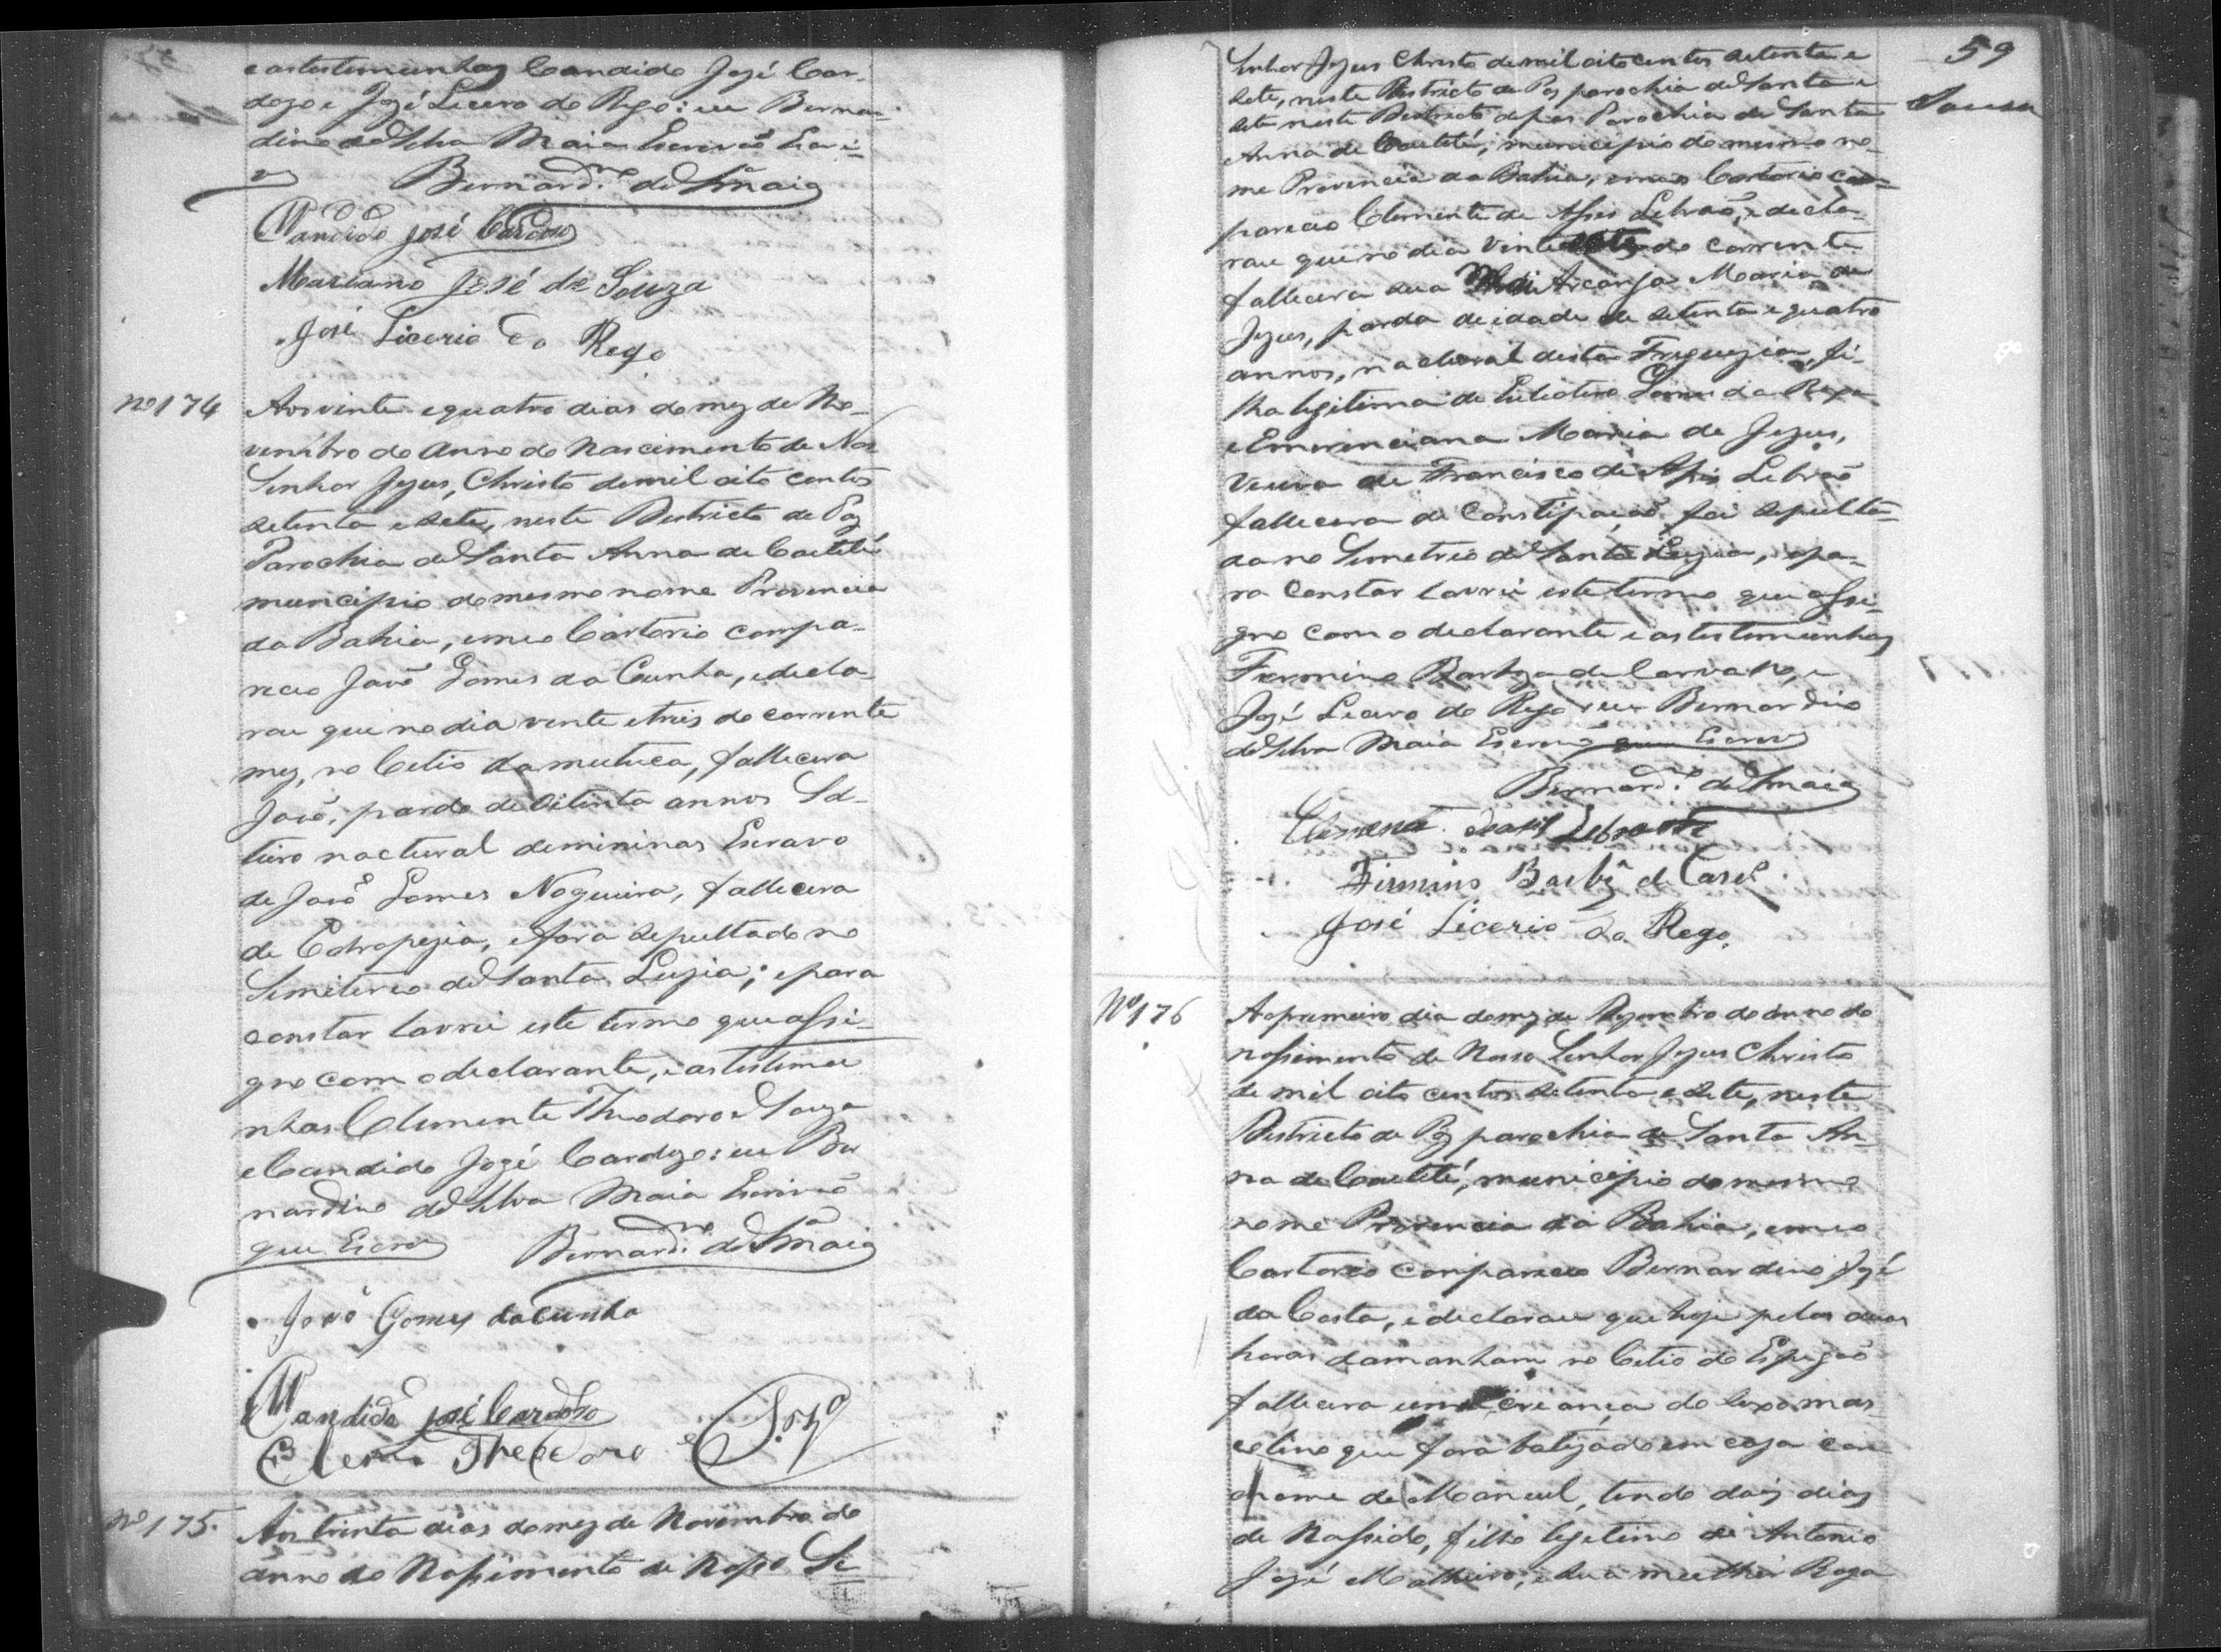 e as testemunhas Candido José Car-
dozo e José Licero do Rego: eu Bernar-
dino da Silva Maia Escrivão Escri-
vy Bernard.no da S.a Maia
Candido José Cardoso
Mariano José de Souza
José Licerio do Rego
Nº 174
Aos vinte e quatro dias do mez de No-
vembro do Anno do Nascimento de Nos
Senhor Jezus, Christo de mil oito centos
setenta e sete, neste Destricto de Paz
Parochia de Santa Anna de Caetité
municipio do mesmo nome Provincia
da Bahia, em meo Cartorio compa-
receo João Gomes da Cunha, e decla-
rou que no dia vente e tres do corrente
mez, no Citio da mutuca, fallecera
João, pardo de Oitinta annos Sol-
teiro nactural de mininas Escravo
de João Gomes Nogueira, fallecera
de Edropezia, e fora sepultado no
Simiterio de Santa Luzia; e para
constar lavrei este termo que assi-
gno com o declarante, e as testemu
nhas Clemente Theodoro de Souza
e Candido José Cardozo: eu Ber
nardino da Silva Maia Escrivão
que Escrevy Bernard.no da S.a Maia
João Gomes da Cunha
Candido José Cardoso
Clemte Theodoro e Soza
Nº 175.
Aos trinta dias do mez de Novembro do
anno do Nassimento de Nosso Se
59
Souza
Senhor Jezus Christo de mil oito centos setenta e
sete, neste Destricto de Paz parochia de Santa e
sete neste Destricto de paz Parochia de Santa
Anna de Caetité, municipio do mesmo no-
me Provincia da Bahia, em meo Cartorio com-
pareceo Clemente de Assis Lebrão, e decla-
rou que no dia vinte sete do corrente
fallecera sua Mãi Arcanja Maria de
Jezus, parda de idade de setenta e quatro
annos, nactural desta Freguezia, fi-
lha legitima de Gomes da Roxa
e Emerenciana Maria de Jezus,
veuva de Francisco de Assis Lebrão
fallecera de Constipação, foi sepulta-
da no Simetrio de Santa Luzia, e pa-
ra constar lavrei este termo que assi-
gno com o declarante e as testemunhas
Fermino Barboza de Carvalho, e
José Licero do Rego: eu Bernardino
da Silva Maia Escrivão que Escrevy
Bernard.no da S.a Maia
Clemente de Assis Lebrão
Firmino Barbz.a d Carv.o
José Licerio do Rego.
Nº 176
Ao primeiro dia do mez de Dezembro do anno do
nassimento de Nosso Senhor Jezus Christo
de mil oito centos setenta e sete, neste
Destricto de Paz parochia de Santa An-
na de Caetité, municipio do mesmo
nome Provincia da Bahia, em meo
Cartorio compareceo Bernardino José
da Costa, e declarou que hoje pelas duas
horas da manham no Citio do Espigão
fallecera uma criança do sexo mas
colino que fora batizado em caza com
o nome de Manoel, tendo dois dias
de Nassido, filho legitimo de Antonio
José Malheiro, e sua mulher Roza